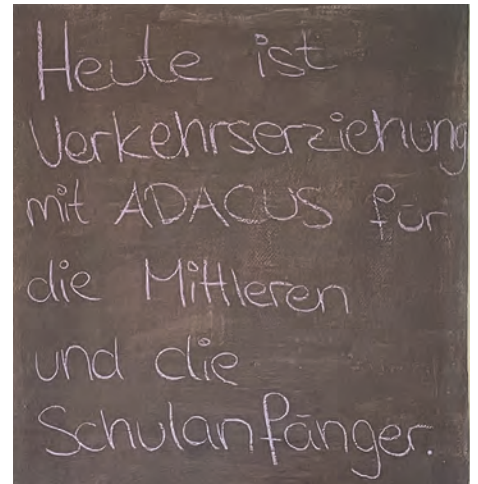 Heute ist
Verkehrserziehung
mit ADACUS für
die Mittleren
und die
Schulanfänger.